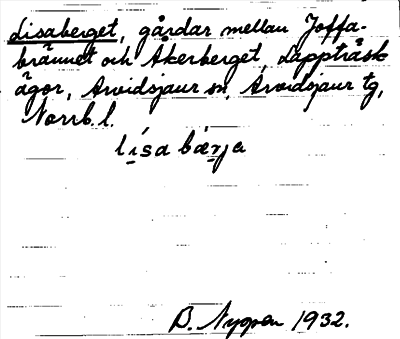 Lisaberget, gårdar mellan Joffa-
brännet och Åkerberget, Lappträsk
ägor, Arvidsjaur sn, Arvidsjaur tg,
Norrb. l.
lísa bærja
B. Nygren 1932.